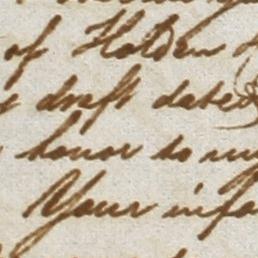 of Holden
draft dated
honor to my
Your info